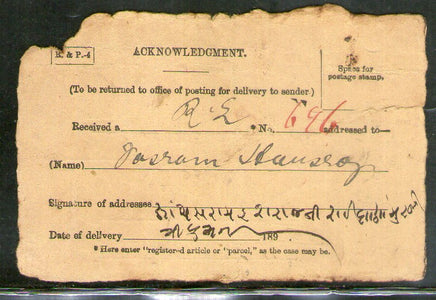 R. & P.-4
ACKNOWLEDGMENT.
Space for
postage stamp.
(To be returned to office of posting for delivery to sender)
Received a R L * No. 696 addressed to—
(Name) Jasram Hansraj
Signature of addressee
Date of delivery 189
* Here enter "register-d article or "parcel," as the case may be.